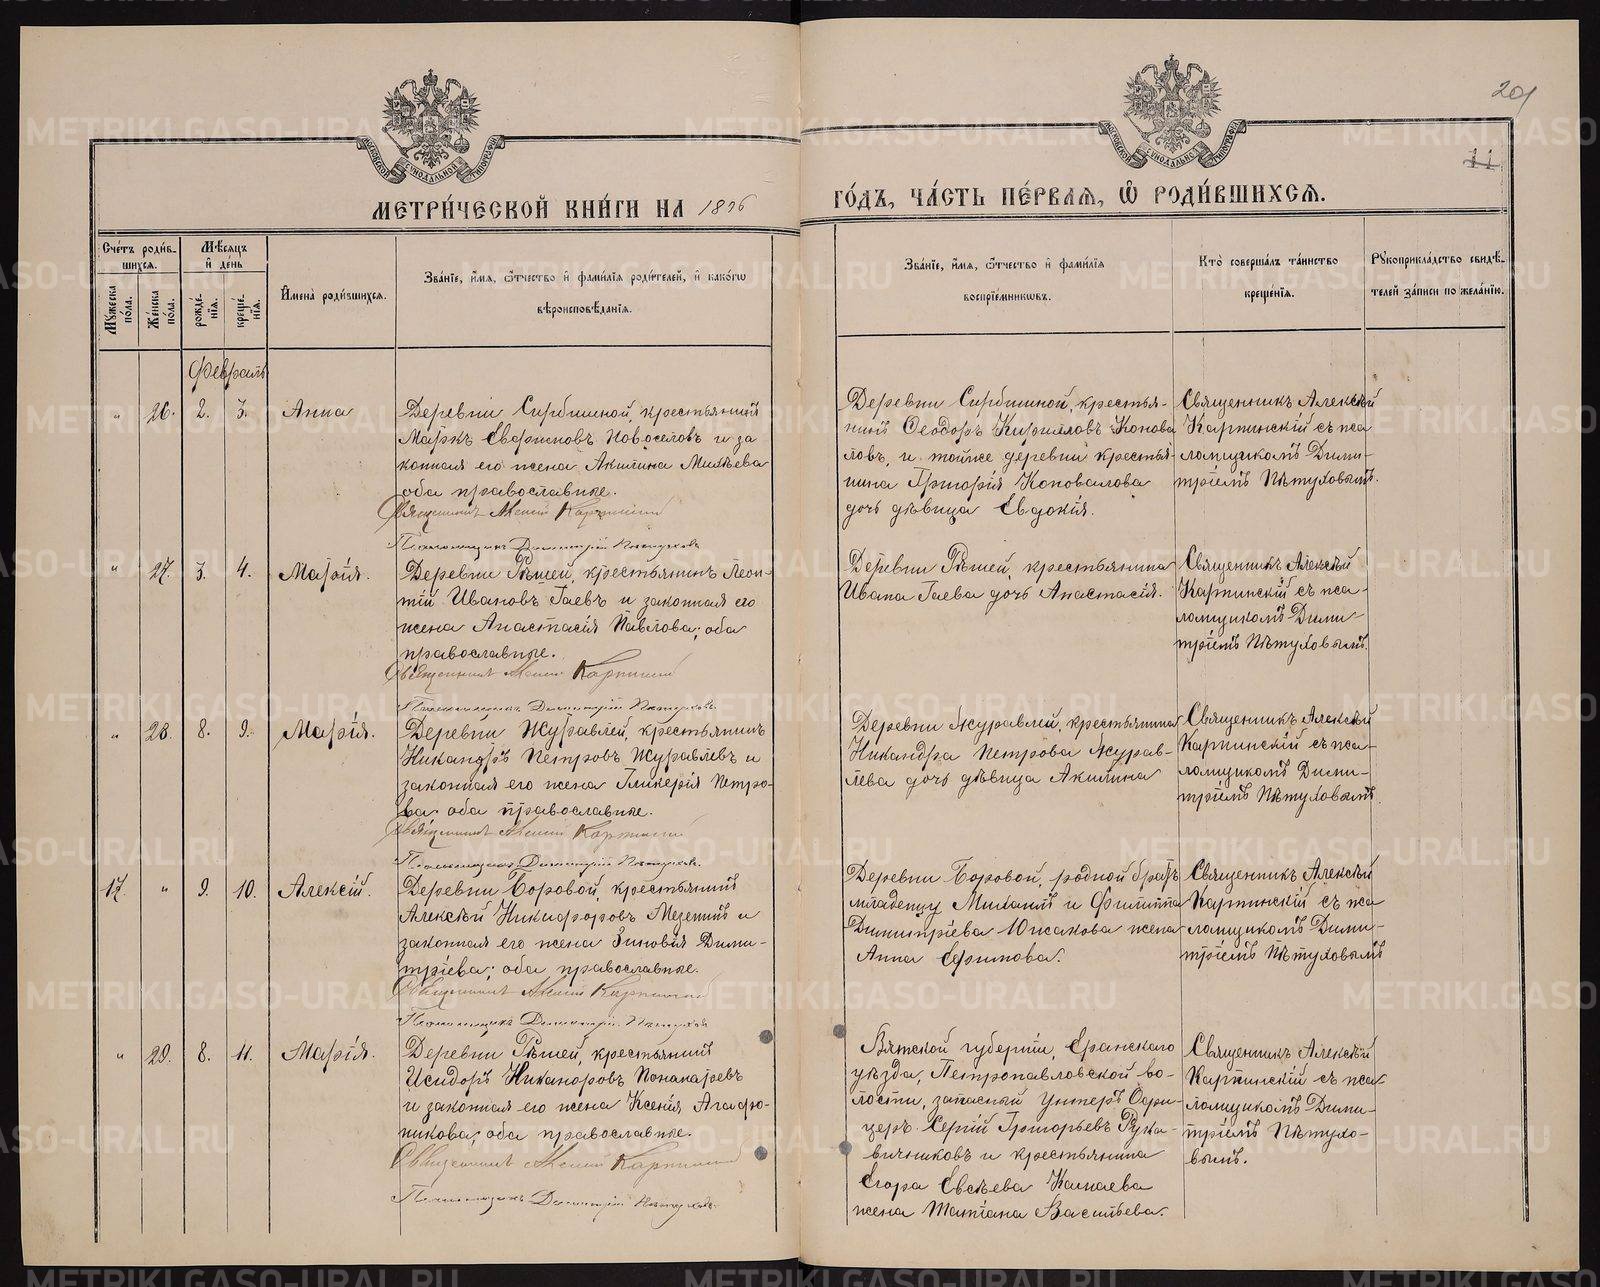 201
11
МОСКОВСКОЙ СѴНОДАЛЬНОЙ ТИПОГРАФІИ
МОСКОВСКОЙ СѴНОДАЛЬНОЙ ТИПОГРАФІИ
МЕТРИ́ЧЕСКОЙ КНИ́ГИ НА 1896
ГО́ДЪ, ЧА́СТЬ ПЕ́РВАѦ, Ѽ РОДИ́ВШИХСѦ.
Сче́тъ роди́в-
шихсѧ.
Мꙋ́жеска по́ла.
Же́нска по́ла.
Мѣ́сяцъ
и҆ де́нь
рожде́-
нїѧ.
креще́-
нїѧ.
И҆мена̀ роди́вшихсѧ.
Зва́нїе, и҆́мѧ, ѻ҆́тчество и҆ фами́лїѧ роди́телей, и҆ како́гѡ
вѣроисповѣ́данїѧ.
Зва́нїе, и҆́мѧ, ѻ҆́тчество и҆ фами́лїѧ
воспрїе́мникѡвъ.
Кто̀ соверша́лъ та́инство
креще́нїѧ.
Рꙋкоприкла́дство свидѣ́-
телей за́писи по жела́нїю.
Февраль
„ 26. 2. 3. Анна
Деревни Сирбишиной крестьянинъ
Маркъ Новоселовъ и за
конная его жена Акилина Михѣева
оба православные.
Священникъ Алексій Карпинскій
Псаломщикъ Димитрій Пѣтуховъ
Деревни Сирбишиной, крестья-
нинъ Ѳеодоръ Кирилловъ Конова
ловъ, и тойже деревни крестья-
нина Григорія Коновалова
дочь дѣвица Евдокія.
Священникъ Алексѣй
Карпинскій съ пса
ломщикомъ Дими-
тріемъ Пѣтуховымъ.
„ 27. 3. 4. Марія.
Деревни Рѣшей, крестьянинъ Леон-
тій Ивановъ Гаевъ и законная его
жена Анастасія Павлова; оба
православные.
Священникъ Алексій Карпинскій
Псаломщикъ Димитрій Пѣтуховъ
Деревни Рѣшей, крестьянина
Ивана Гаева дочь Анастасія.
Священникъ Алексѣй
Карпинскій съ пса-
ломщикомъ Дими-
тріемъ Пѣтуховымъ.
„ 28. 8. 9. Марія.
Деревни Журавлей, крестьянинъ
Никандръ Петровъ Журавлевъ и
законная его жена Гликерія Петро-
ва; оба православные.
Священникъ Алексій Карпинскій
Псаломщикъ Димитрій Пѣтуховъ
Деревни Журавлей, крестьянина
Никандра Петрова Журав-
лева дочь дѣвица Акилина
Священникъ Алексѣй
Карпинскій съ пса-
ломщикомъ Дими-
тріемъ Пѣтуховымъ.
17. „ 9. 10. Алексій.
Деревни Боровой, крестьянинъ
Алексѣй Никифоровъ Мезенинъ и
законная его жена Зиновія Дими-
тріева; оба православные.
Священникъ Алексій Карпинскій
Псаломщикъ Димитрій Пѣтуховъ
Деревни Боровой, родной братъ
младенцу Михаилъ и Филиппа
Димитріева Юшакова жена
Анна Ефимова.
Священникъ Алексѣй
Карпинскій съ пса
ломщикомъ Дими-
тріемъ Пѣтуховымъ
„ 29. 8. 11. Марія.
Деревни Рѣшей, крестьянинъ
Исидоръ Никаноровъ Понакаревъ
и законная его жена Ксенія Агафо-
никова; оба православные.
Священникъ Алексій Карпинскій
Псаломщикъ Димитрій Пѣтуховъ
Вятской губерніи, Еранскаго
уѣзда, Петропавловской во-
лости, запасный Унтеръ Офи-
церъ Сергій Григорьевъ Рука-
вичниковъ и крестьянина
Егора Евсѣева
жена Татіана Васильева.
Священникъ Алексѣй
Карпинскій съ пса-
ломщикомъ Дими-
тріемъ Пѣтухо-
вымъ.
METRIKI.GASO-URAL.RU